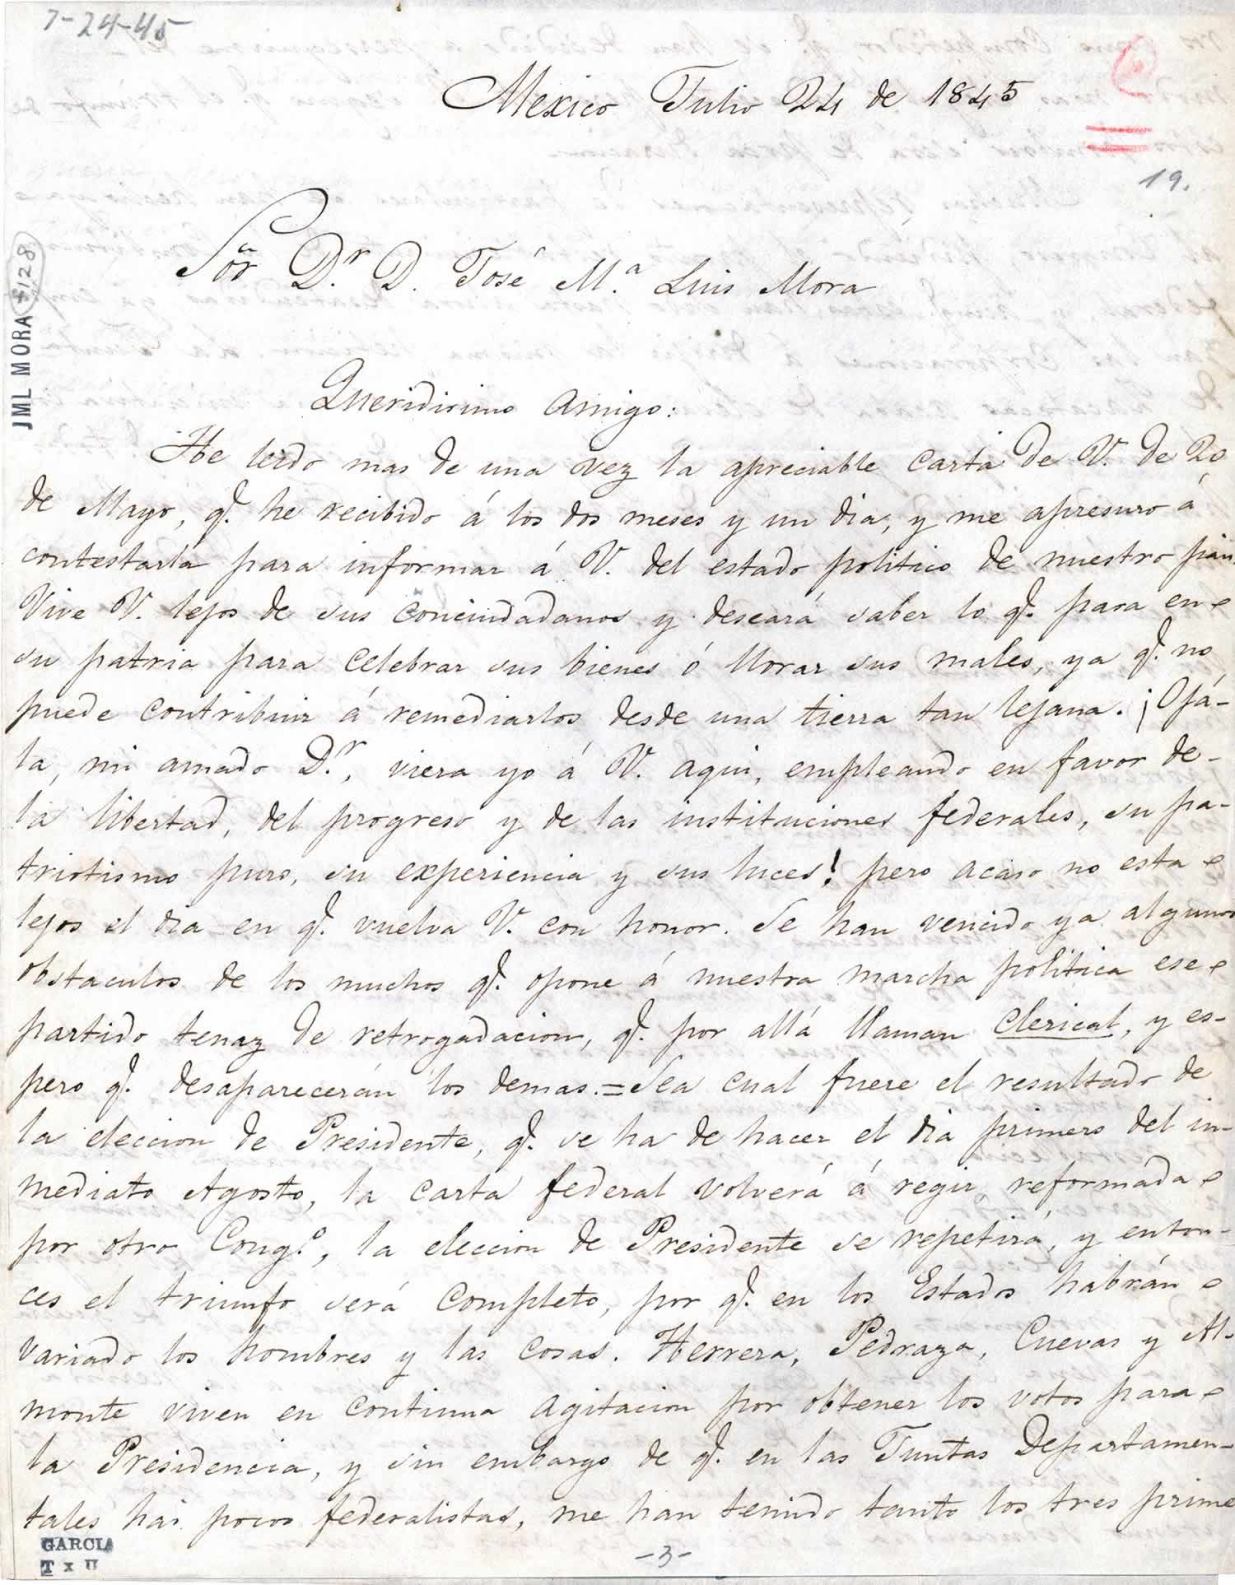 7-24-45
Mexico Julio 24 de 1845
19.
JML MORA #128
Sõr Dr. D. José M.ª Luis Mora
Queridisimo Amigo:
He leido mas de una vez la apreciable carta de V. de 20
de Mayo, q.e he recibido á los dos meses y un dia, y me apresuro á
contestarla para informar á V. del estado politico de nuestro pais.
Vive V. lejos de sus conciudadanos y deseará saber lo q.e pasa en
su patria para celebrar sus bienes ó llorar sus males, ya q.e no
puede contribuir á remediarlos desde una tierra tan lejana. ¡Ojá-
la, mi amado D.r, viera yo á V. aqui, empleando en favor de-
la libertad, del progreso y de las instituciones federales, su pa-
triotismo puro, su experiencia y sus luces! pero acaso no esta
lejos el dia en q.e vuelva V. con honor. Se han vencido ya algunos
obstaculos de los muchos q.e opone á nuestra marcha politica ese
partido tenaz de retrogadacion, q.e por allá llaman clerical, y es-
pero q.e desaparecerán los demas.=Sea cual fuere el resultado de
la eleccion de Presidente, q.e se ha de hacer el dia primero del in-
mediato Agosto, la carta federal volverá á regir reformada
por otro Cong.o, la eleccion de Presidente se repetirá, y enton-
ces el triunfo será completo, por q.e en los Estados habrán
variado los hombres y las cosas. Herrera, Pedraza, Cuevas y Al-
monte viven en continua agitacion por obtener los votos para
la Presidencia, y sin embargo de q.e en las Juntas Departamen-
tales hai pocos federalistas, me han tenido tanto los tres prime
-3-
GARCIA
T x U